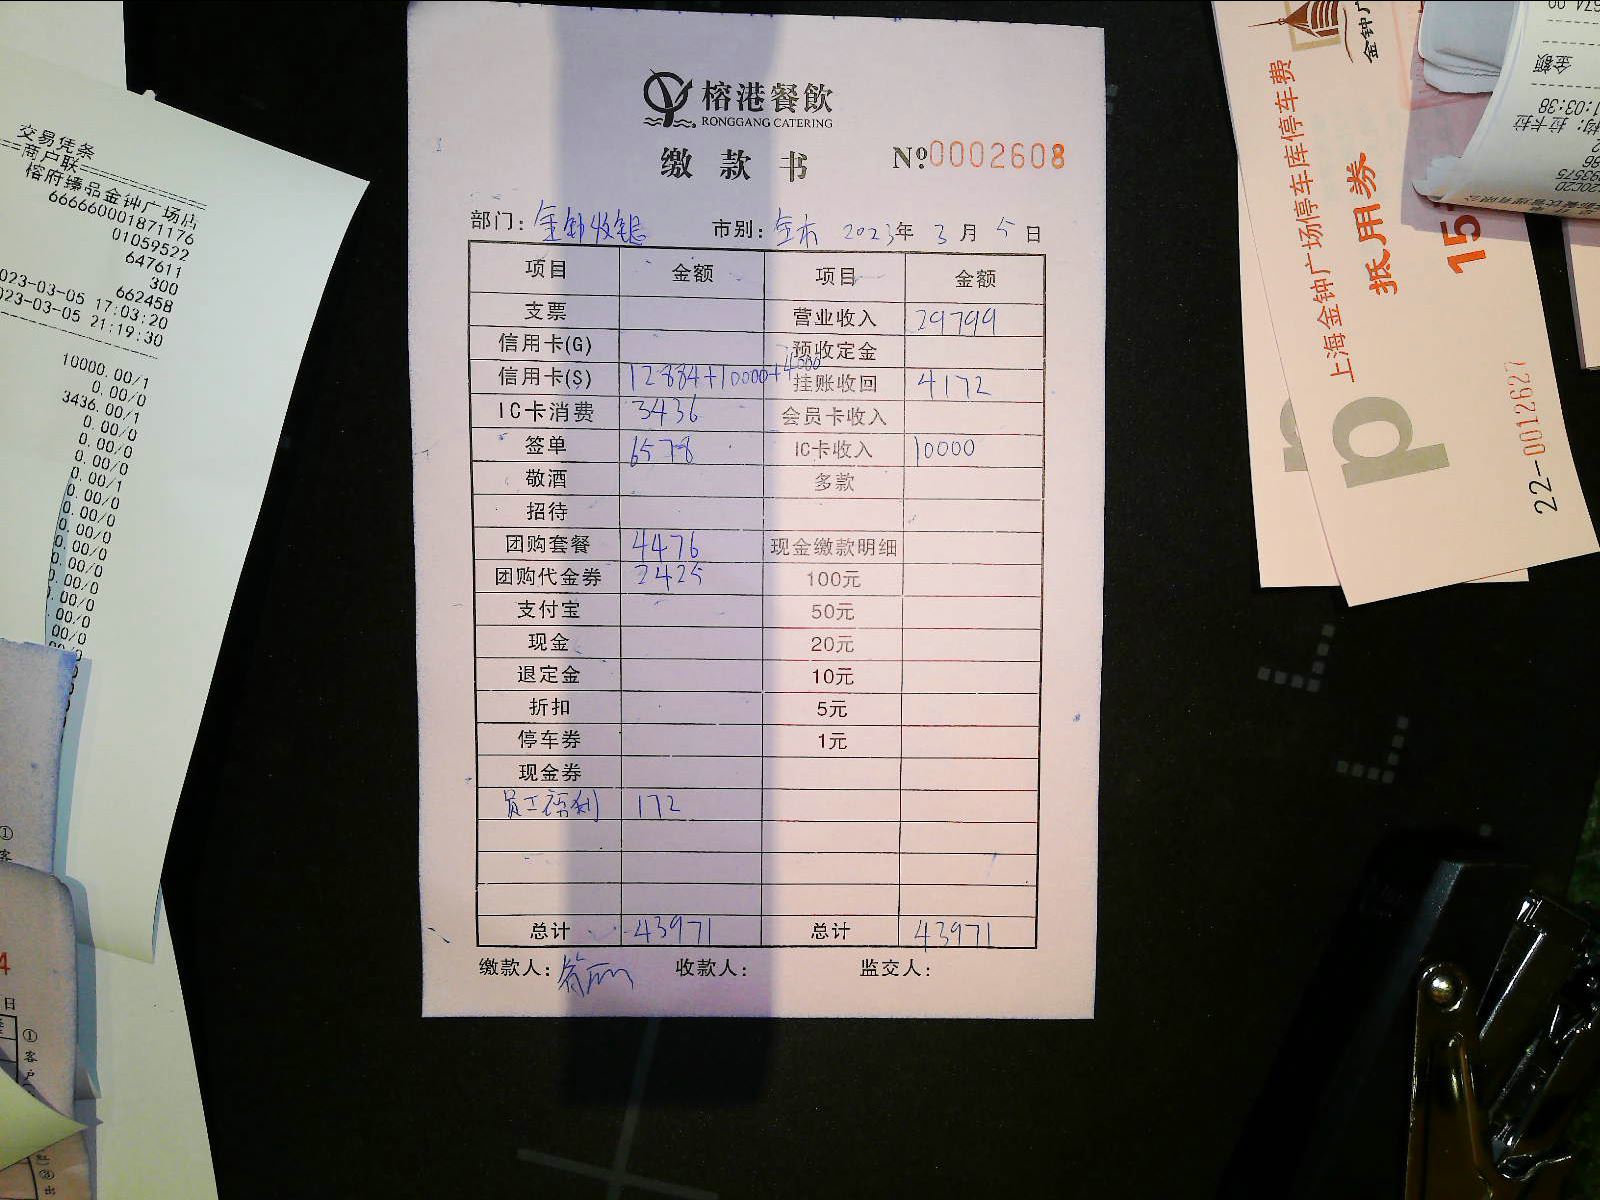 榕港餐飲
RONGGANG CATERING
缴款书 №0002608
部门: 金钟收银 市别: 全市 2023年 3月 5日
项目 金额 项目 金额
支票 营业收入 29799
信用卡(G) 预收定金
信用卡(S) 12884+10000+4000 挂账收回 4172
IC卡消费 3436 会员卡收入
签单 6578 IC卡收入 10000
敬酒 多款
招待
团购套餐 4476 现金缴款明细
团购代金券 2425 100元
支付宝 50元
现金 20元
退定金 10元
折扣 5元
停车券 1元
现金券
员工福利 172
总计 43971 总计 43971
缴款人: 收款人: 监交人:
交易凭条
==商户联==========
榕府臻品金钟广场店
666660001871176
01059522
647611
300
662458
023-03-05 17:03:20
023-03-05 21:19:30
10000.00/1
0.00/0
3436.00/1
0.00/0
0.00/0
0.00/0
0.00/1
0.00/0
0.00/0
0.00/0
0.00/0
0.00/0
.00/0
.00/0
.00/0
.00/0
①
客
4
日
①
客
户
上海金钟广场停车库停车费
抵用券
15
p
22-0012627
金钟广
金额
1:03:38
拉卡拉